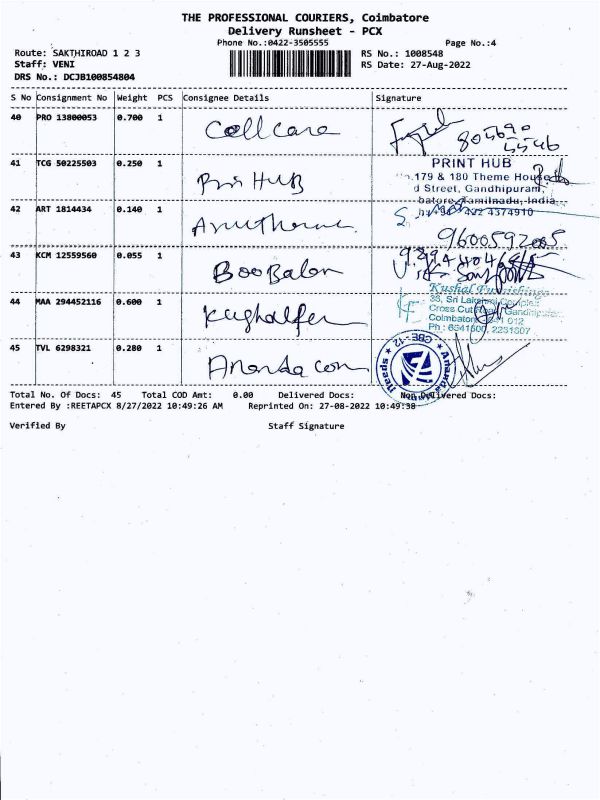 THE PROFESSIONAL COURIERS, Coimbatore
Delivery Runsheet - PCX
Phone No.:0422-3505555 Page No.:4
Route: SAKTHIROAD 1 2 3 RS No.: 1008548
Staff: VENI RS Date: 27-Aug-2022
DRS No.: DCJB100854804
S No Consignment No Weight PCS Consignee Details Signature
40 PRO 13800053 0.700 1 Cellcare
805690
5546
41 TCG 50225503 0.250 1 Print HUB
PRINT HUB
179 & 180 Theme House
d Street, Gandhipuram,
batore, Tamilnadu, India
422 4374910
42 ART 1814434 0.140 1
9600592005
43 KCM 12559560 0.055 1 BooBalan
44 MAA 294452116 0.600 1
Kushal Furnishings
38, Sri Lakshmi Complex
Cross Cut Road, Gandhipuram
Coimbatore 641 012
Ph : 6541800, 2231807
45 TVL 6298321 0.280 1 Ananda con
CBE - 12
Total No. Of Docs: 45 Total COD Amt: 0.00 Delivered Docs: Non Delivered Docs:
Entered By :REETAPCX 8/27/2022 10:49:26 AM Reprinted On: 27-08-2022 10:49:38
Verified By Staff Signature